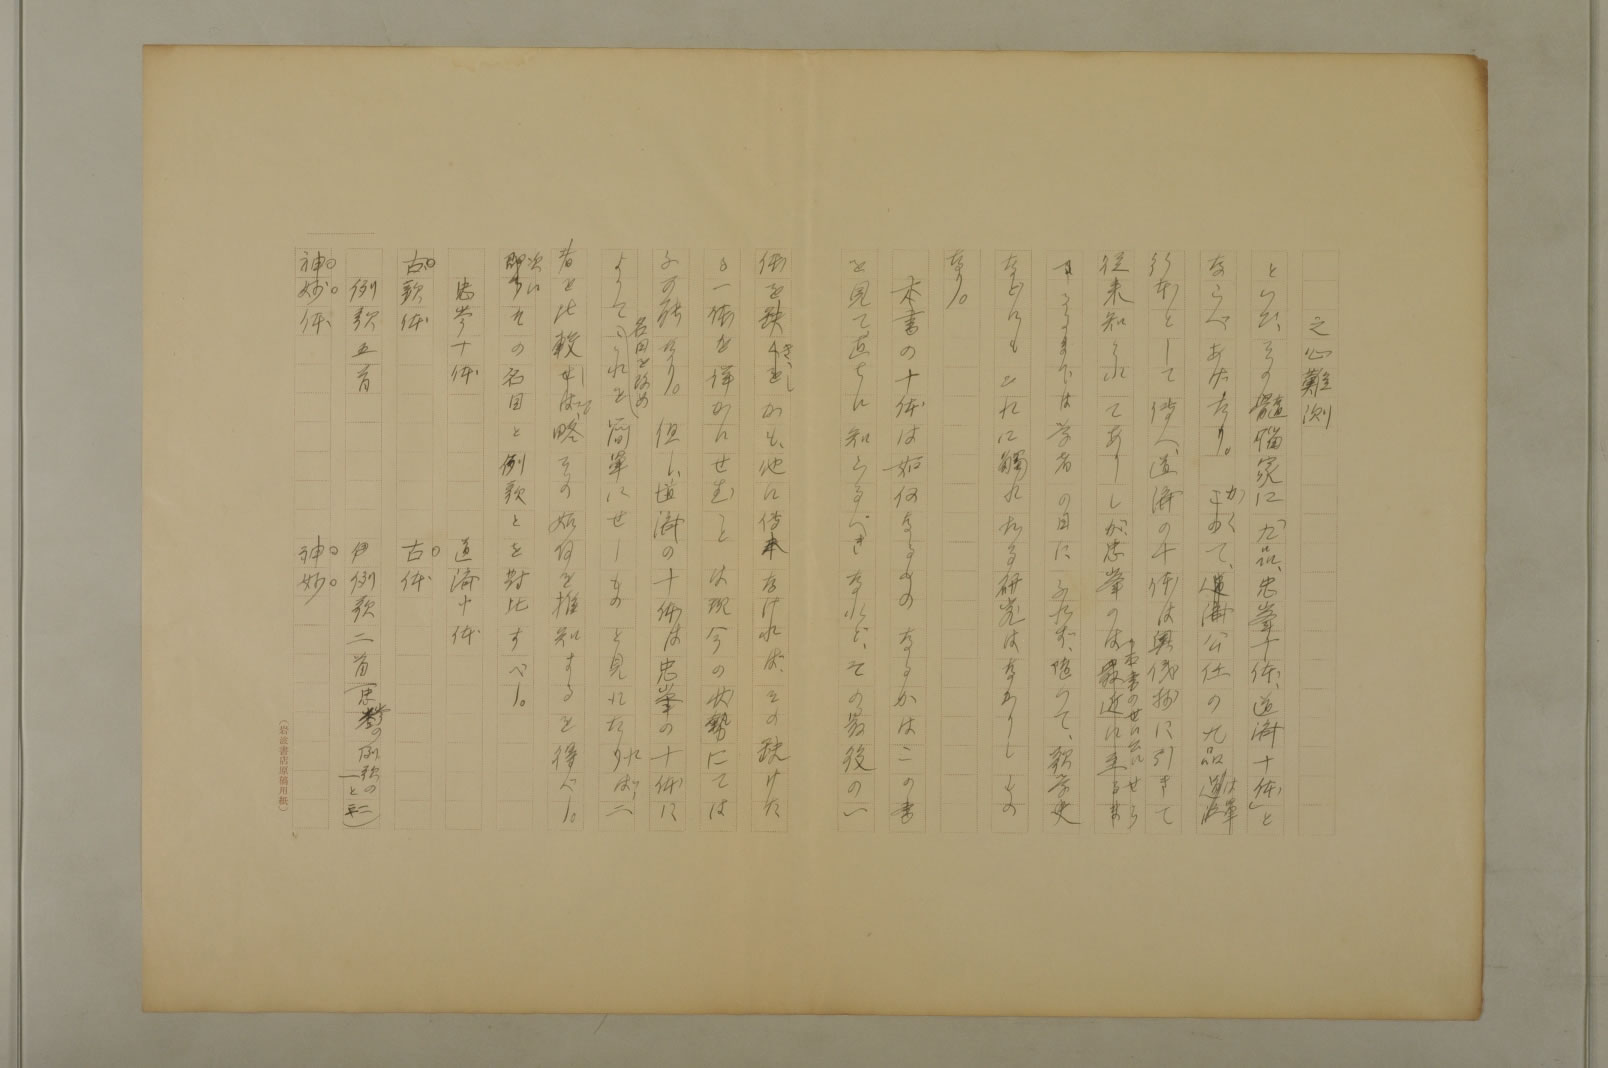 之心難測
といひ、その髓腦家に「九品、忠岑十体、道済十体」と
ならべあげたり。かくて、公任の九品は
行本として傳へ、道済の十体は奥儀抄に引きて
従来知られてありしが、忠岑のは最近に至るま
本書のせに出にせら
では学者の目にふれず、従つて、歌学史
などにもこれに觸れたる研究はなかりしもの
なり。
本書の十体は如何なるものなるかはこの書
を見て直ちに知らるべきなれど、その最後の一
体を缺きしかも、他に傳本なければ、その缺けた
る一体を詳かにせむことは現今の状勢にては
不可能なり。但し、道済の十体は忠岑の十体に
よりて(これを簡單にせしものと見れたれば、二
名目を改め
者を比較せば、略その如何を推知するを得べし。
次に
その名目と例歌とを対比すべし。
忠岑十体　道済十体
古歌体　古体
例歌五首　例歌二首(忠岑の例歌の一と二)
神妙体　神妙
(岩波書店原稿用紙)